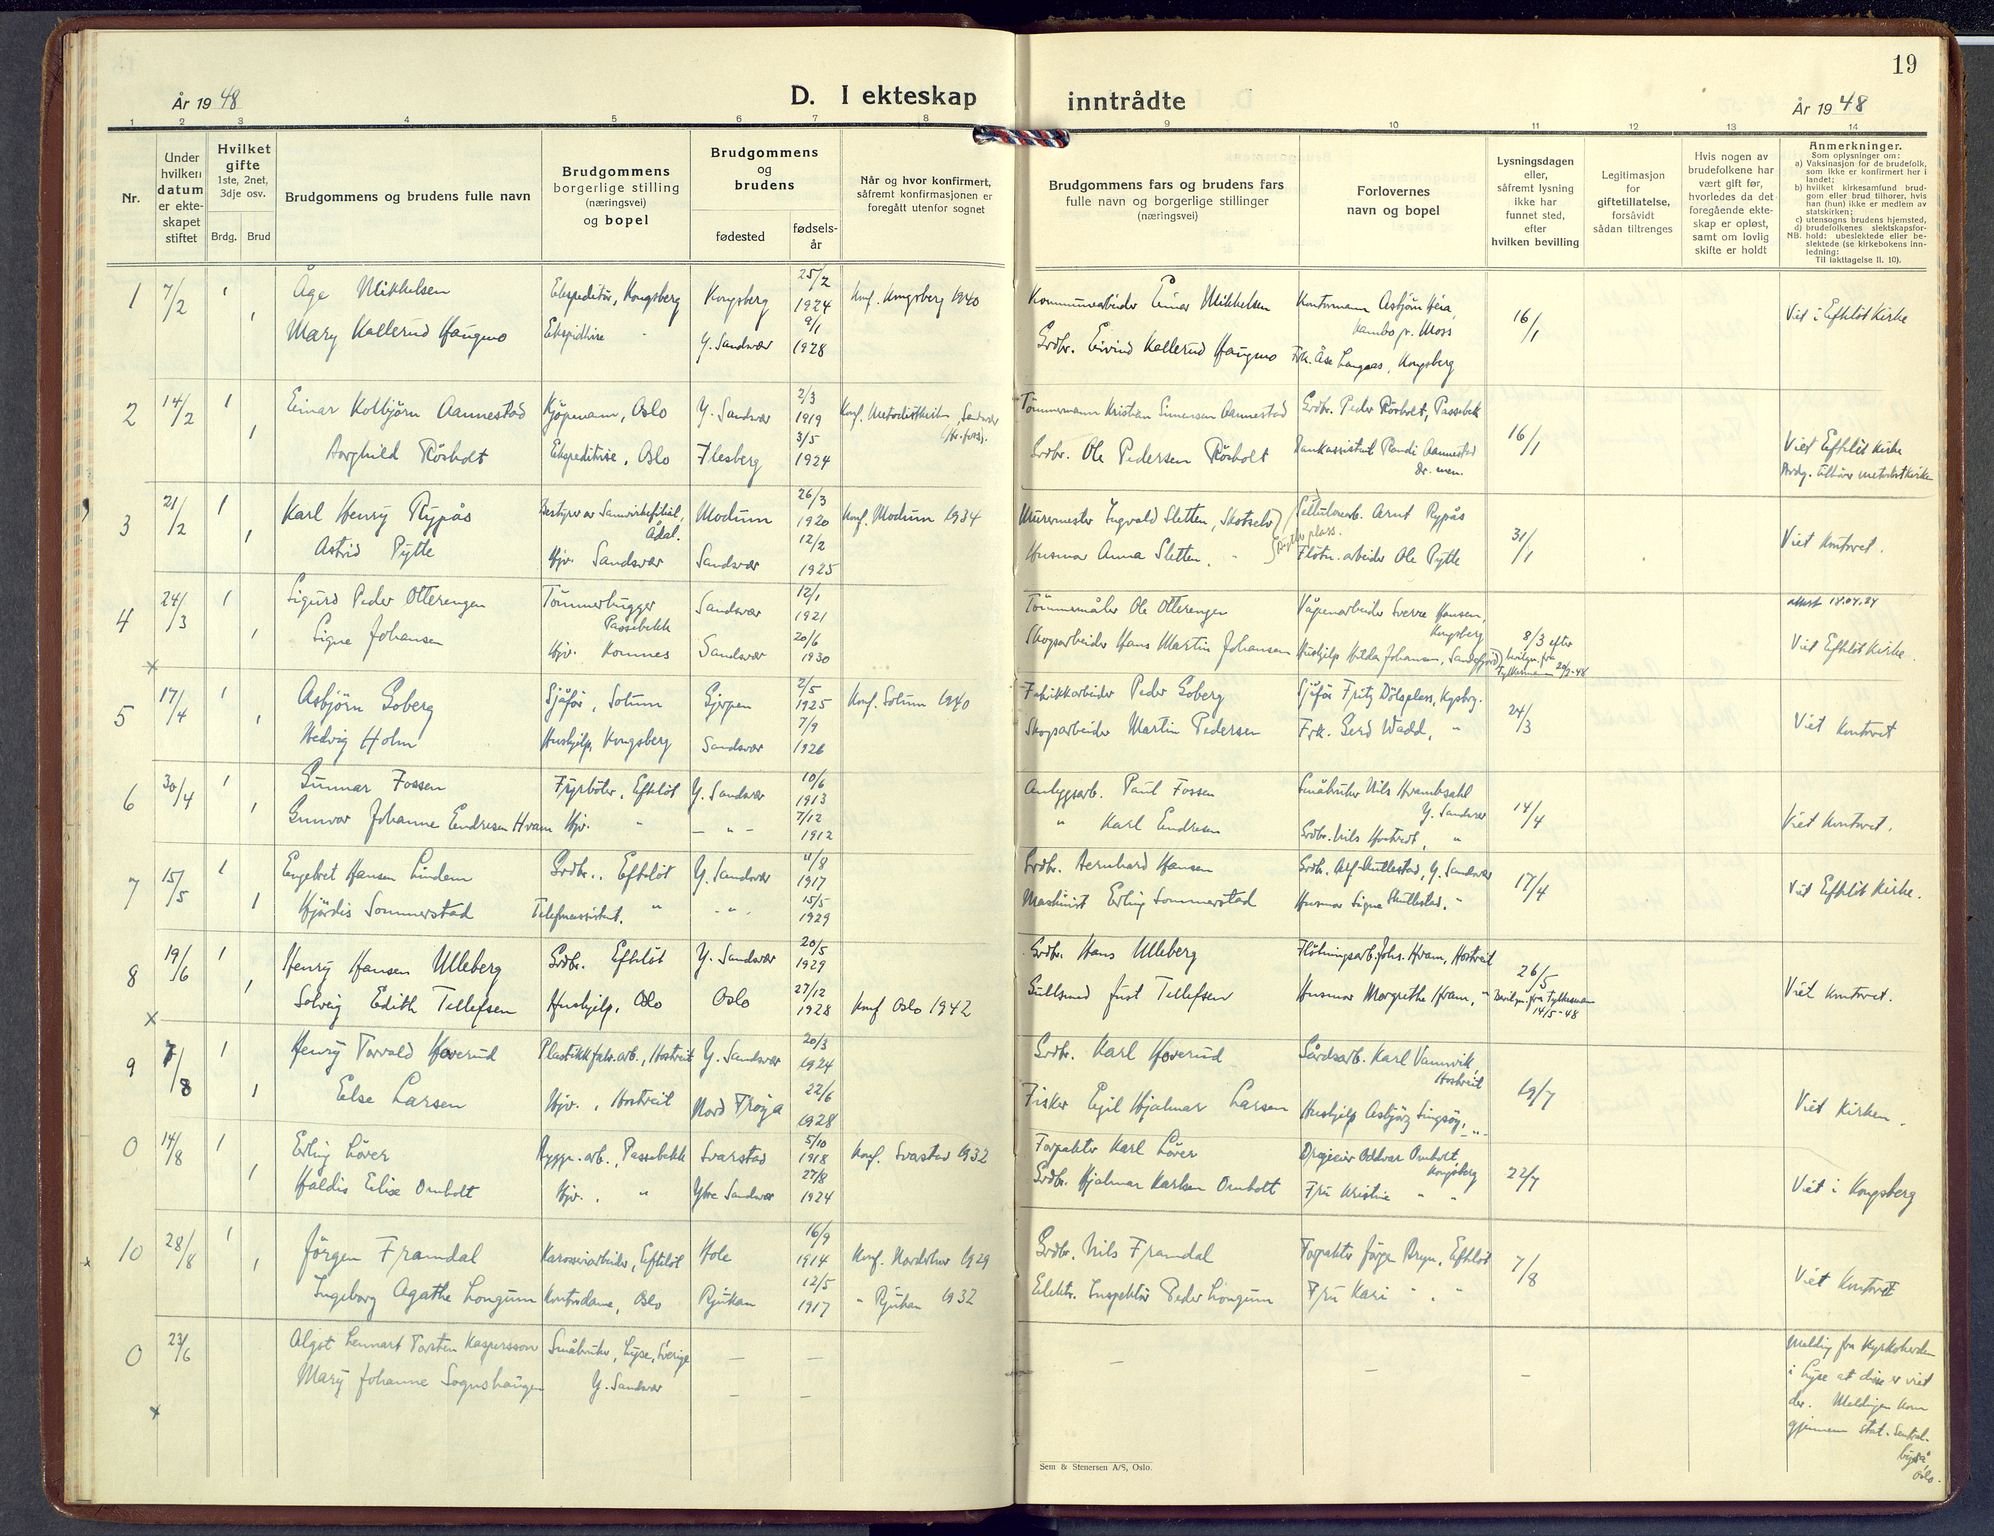 19
År 1948
D. I ekteskap
inntrådte
År 1948
1 2 3 4 5 6 7 8 9 10 11 12 13 14
Nr.
Under hvilken datum er ekteskapet stiftet
Hvilket gifte
1ste, 2net, 3dje osv.
Brdg. Brud
Brudgommens og brudens fulle navn
Brudgommens borgerlige stilling (næringsvei) og bopel
Brudgommens og brudens
fødested
fødselsår
Når og hvor konfirmert, såfremt konfirmasjonen er foregått utenfor sognet
Brudgommens fars og brudens fars fulle navn og borgerlige stillinger (næringsvei)
Forlovernes navn og bopel
Lysningsdagen eller, såfremt lysning ikke har funnet sted, efter hvilken bevilling
Legitimasjon for giftetillatelse, forsåvidt sådan tiltrenges
Hvis nogen av brudefolkene har vært gift før, hvorledes da det foregående ekteskap er opløst, samt om lovlig skifte er holdt
Anmerkninger.
Som oplysninger om:
a) Vaksinasjon for de brudefolk, som ikke er konfirmert her i landet;
b) hvilket kirkesamfund brudgom eller brud tilhorer, hvis han (hun) ikke er medlem av statskirken;
c) utensogns brudens hjemsted,
d) brudefolkenes slektskapsforhold: ubeslektede eller beslektede (se kirkebokens innledning:
NB.
Til iakttagelse II. 10).
1 7/2 1 Åge Mikkelsen Ekspeditør, Kongsberg Kongsberg 25/2 1924 Konf. Kongsberg 1940 Kommunearbeider Einar Mikkelsen Kontormann Asbjörn Heia, Kambo pr. Moss 16/1 Viet i Efteløt Kirke
1 Mary Kallerud Haugmo Ekspeditrise Y. Sandsvær 9/1 1928 Grdbr. Eivind Kallerud Haugmo Frk. Åse Langaas, Kongsberg
2 14/2 1 Einar Kolbjörn Aannestad Kjöpmann, Oslo Y. Sandsvær 2/3 1919 Konf. Metodistkirken, Sandsvær Tömmermann Kristian Simensen Aannestad Grdbr. Peder Rösholt, Passebekk 16/1 Viet Efteløt Kirke
1 Borghild Rösholt Ekspeditrise, Oslo Flesberg 3/5 1924 Grdbr. Ole Pedersen Rösholt Bankassistent Randi Aannestad Brdg. tilhörer metodistkirken
3 21/2 1 Karl Henry Rypås Bestyrer av Samvirkefilial, Ådal. Modum 26/3 1920 Konf. Modum 1934 Murermester Ingvald Sletten, Skotselv Cellulosearb. Arnt Rypås 31/1 Viet Kontoret.
1 Astrid Pytte Hjv. Sandsvær Sandsvær 12/2 1925 Husmor Anna Sletten. " Flötn. arbeider Ole Pytte
4 24/3 1 Sigurd Peder Otterengen Tömmerhugger Passebekk Sandsvær 12/1 1921 Tömmermåler Ole Otterengen Våpenarbeider Sverre Hansen, Kongsberg 8/3 efter bevilgn. fra Fylkesmann 20/2-48 attest 18.04.24
x 1 Signe Johansen Hjv. Komnes Sandsvær 20/6 1930 Skogsarbeider Hans Martin Johansen Hushjelp Hilda Johansen, Sandefjord Viet Efteløt Kirke.
5 17/4 1 Asbjörn Goberg Sjåför, Solum Gjerpen 2/5 1925 Konf. Solum 1940 Fabrikkarbeider Peder Goberg Sjåför Fritz Dölsplass, Kgsbrg. 24/3 Viet Kontoret
1 Hedvig Holm Hushjelp, Kongsberg Sandsvær 7/9 1926 Skogsarbeider Martin Pedersen Frk. Gerd Wadd, "
6 30/4 1 Gunnar Fossen Fyrböter, Efteløt Y. Sandsvær 10/6 1913 Anleggsarb. Paul Fossen Småbruker Nils Hvambsahl Y. Sandsvær 14/4 Viet Kontoret.
1 Gunvor Johanne Endresen Hvam Hjv. " — " — 7/12 1912 " Karl Endresen Grdbr. Nils Hostvedt, "
7 15/5 1 Engebret Hansen Lindem Grdbr., Efteløt Y. Sandsvær 11/8 1917 Grdbr. Bernhard Hansen Grdbr. Alf Skullestad, Y. Sandsvær 17/4 Viet Efteløt Kirke.
1 Hjördis Sommerstad Telefonassistent. " - " - 15/5 1929 Maskinist Erling Sommerstad Husmor Signe Skullestad, "
8 19/6 1 Henry Hansen Ulleberg Grdbr. Efteløt Y. Sandsvær 20/5 1929 Grdbr. Hans Ulleberg Flötningsarb. Johs. Hvam, Hostveit 26/5 Bevilgn. fra Fylkesmann 14/5-48 Viet Kontoret.
x 1 Solveig Edith Tellefsen Hushjelp, Oslo Oslo 27/12 1928 Konf Oslo 1942 Gullsmed Just Tellefsen Husmor Margrethe Hvam, "
9 7/8 1 Henry Torvald Hoverud Plastikkfabr.arb., Hostveit Y. Sandsvær 20/3 1924 Grdbr. Karl Hoverud Gårdsarb. Karl Vannvik, Hostveit 19/7 Viet Kirken.
1 Else Larsen Hjv., Hostveit Nord Fröya 22/6 1928 Fisker Egil Hjalmar Larsen Hushjelp Asbjörg Singsög, - " -
0 14/8 1 Erling Löver Bygn.arb., Passebekk Svarstad 5/10 1918 Konf. Svarstad 1932 Forpakter Karl Löver Drejeier Oddvar Omholt, Kongsberg 22/7 Viet i Kongsberg
1 Haldis Elise Omholt Hjv., " Ytre Sandsvær 27/8 1924 Grdbr. Hjalmar Karlsen Omholt Fru Kristine " "
10 28/8 1 Jörgen Framdal Karosseriarbeider, Efteløt Hole 16/9 1914 Konf. Norderhov 1929 Grdbr. Nils Framdal Forpakter Jörgen Bryn, Efteløt 7/8 Viet Kontoret
1 Ingeborg Agathe Longum Kontordame, Oslo Rjukan 12/5 1917 " Rjukan 1932 Elektr. Inspektör Peder Longum Fru Kari " . "
0 23/6 Algot Lennart Torsten Kaspersson Småbruker, Lyse, Sverige — — — — — Melding fra Kyrkoherden i Lyse at disse er viet der. Meldingen kom gjennem Stat. Sentralbyrå Oslo.
x Mary Johanne Sognshaugen Y. Sandsvær — —
Sem & Stenersen A/S, Oslo.